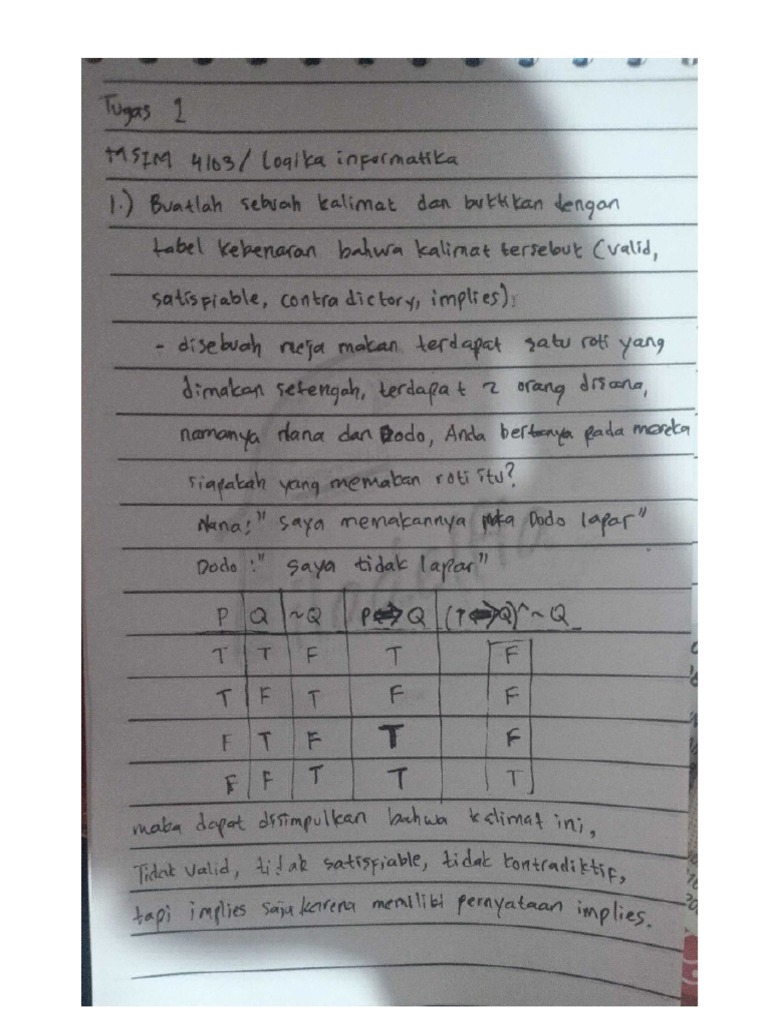 Tugas 1
MSIM 4103/ Logika informatika
1.) Buatlah sebuah kalimat dan buktikan dengan
tabel kebenaran bahwa kalimat tersebut (valid,
satisfiable, contradictory, implies).
- disebuah meja makan terdapat satu roti yang
dimakan setengah, terdapat 2 orang disana,
namanya Nana dan Dodo, Anda bertanya pada mereka
siapakah yang memakan roti itu?
Nana: "saya memakannya jika Dodo lapar"
Dodo: "saya tidak lapar"
P Q ~Q P⇔Q (P⇔Q)^~Q
T T F T F
T F T F F
F T F T F
F F T T T
maka dapat disimpulkan bahwa kalimat ini,
Tidak valid, tidak satisfiable, tidak kontradiktif,
tapi implies saja karena memiliki pernyataan implies.